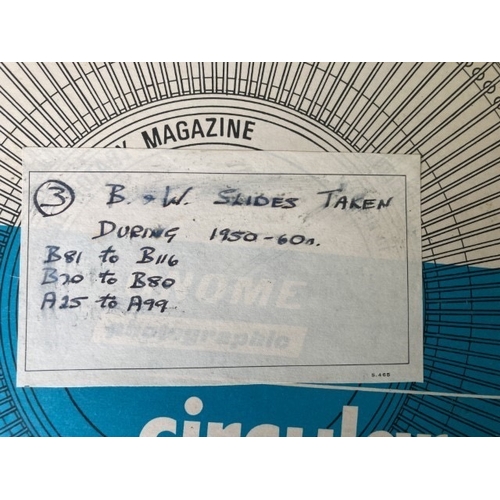 MAGAZINE
③ B. & W. SLIDES TAKEN
DURING 1950-60s.
B81 to B116
B20 to B80
A25 to A99
GNOME
photographic
circular